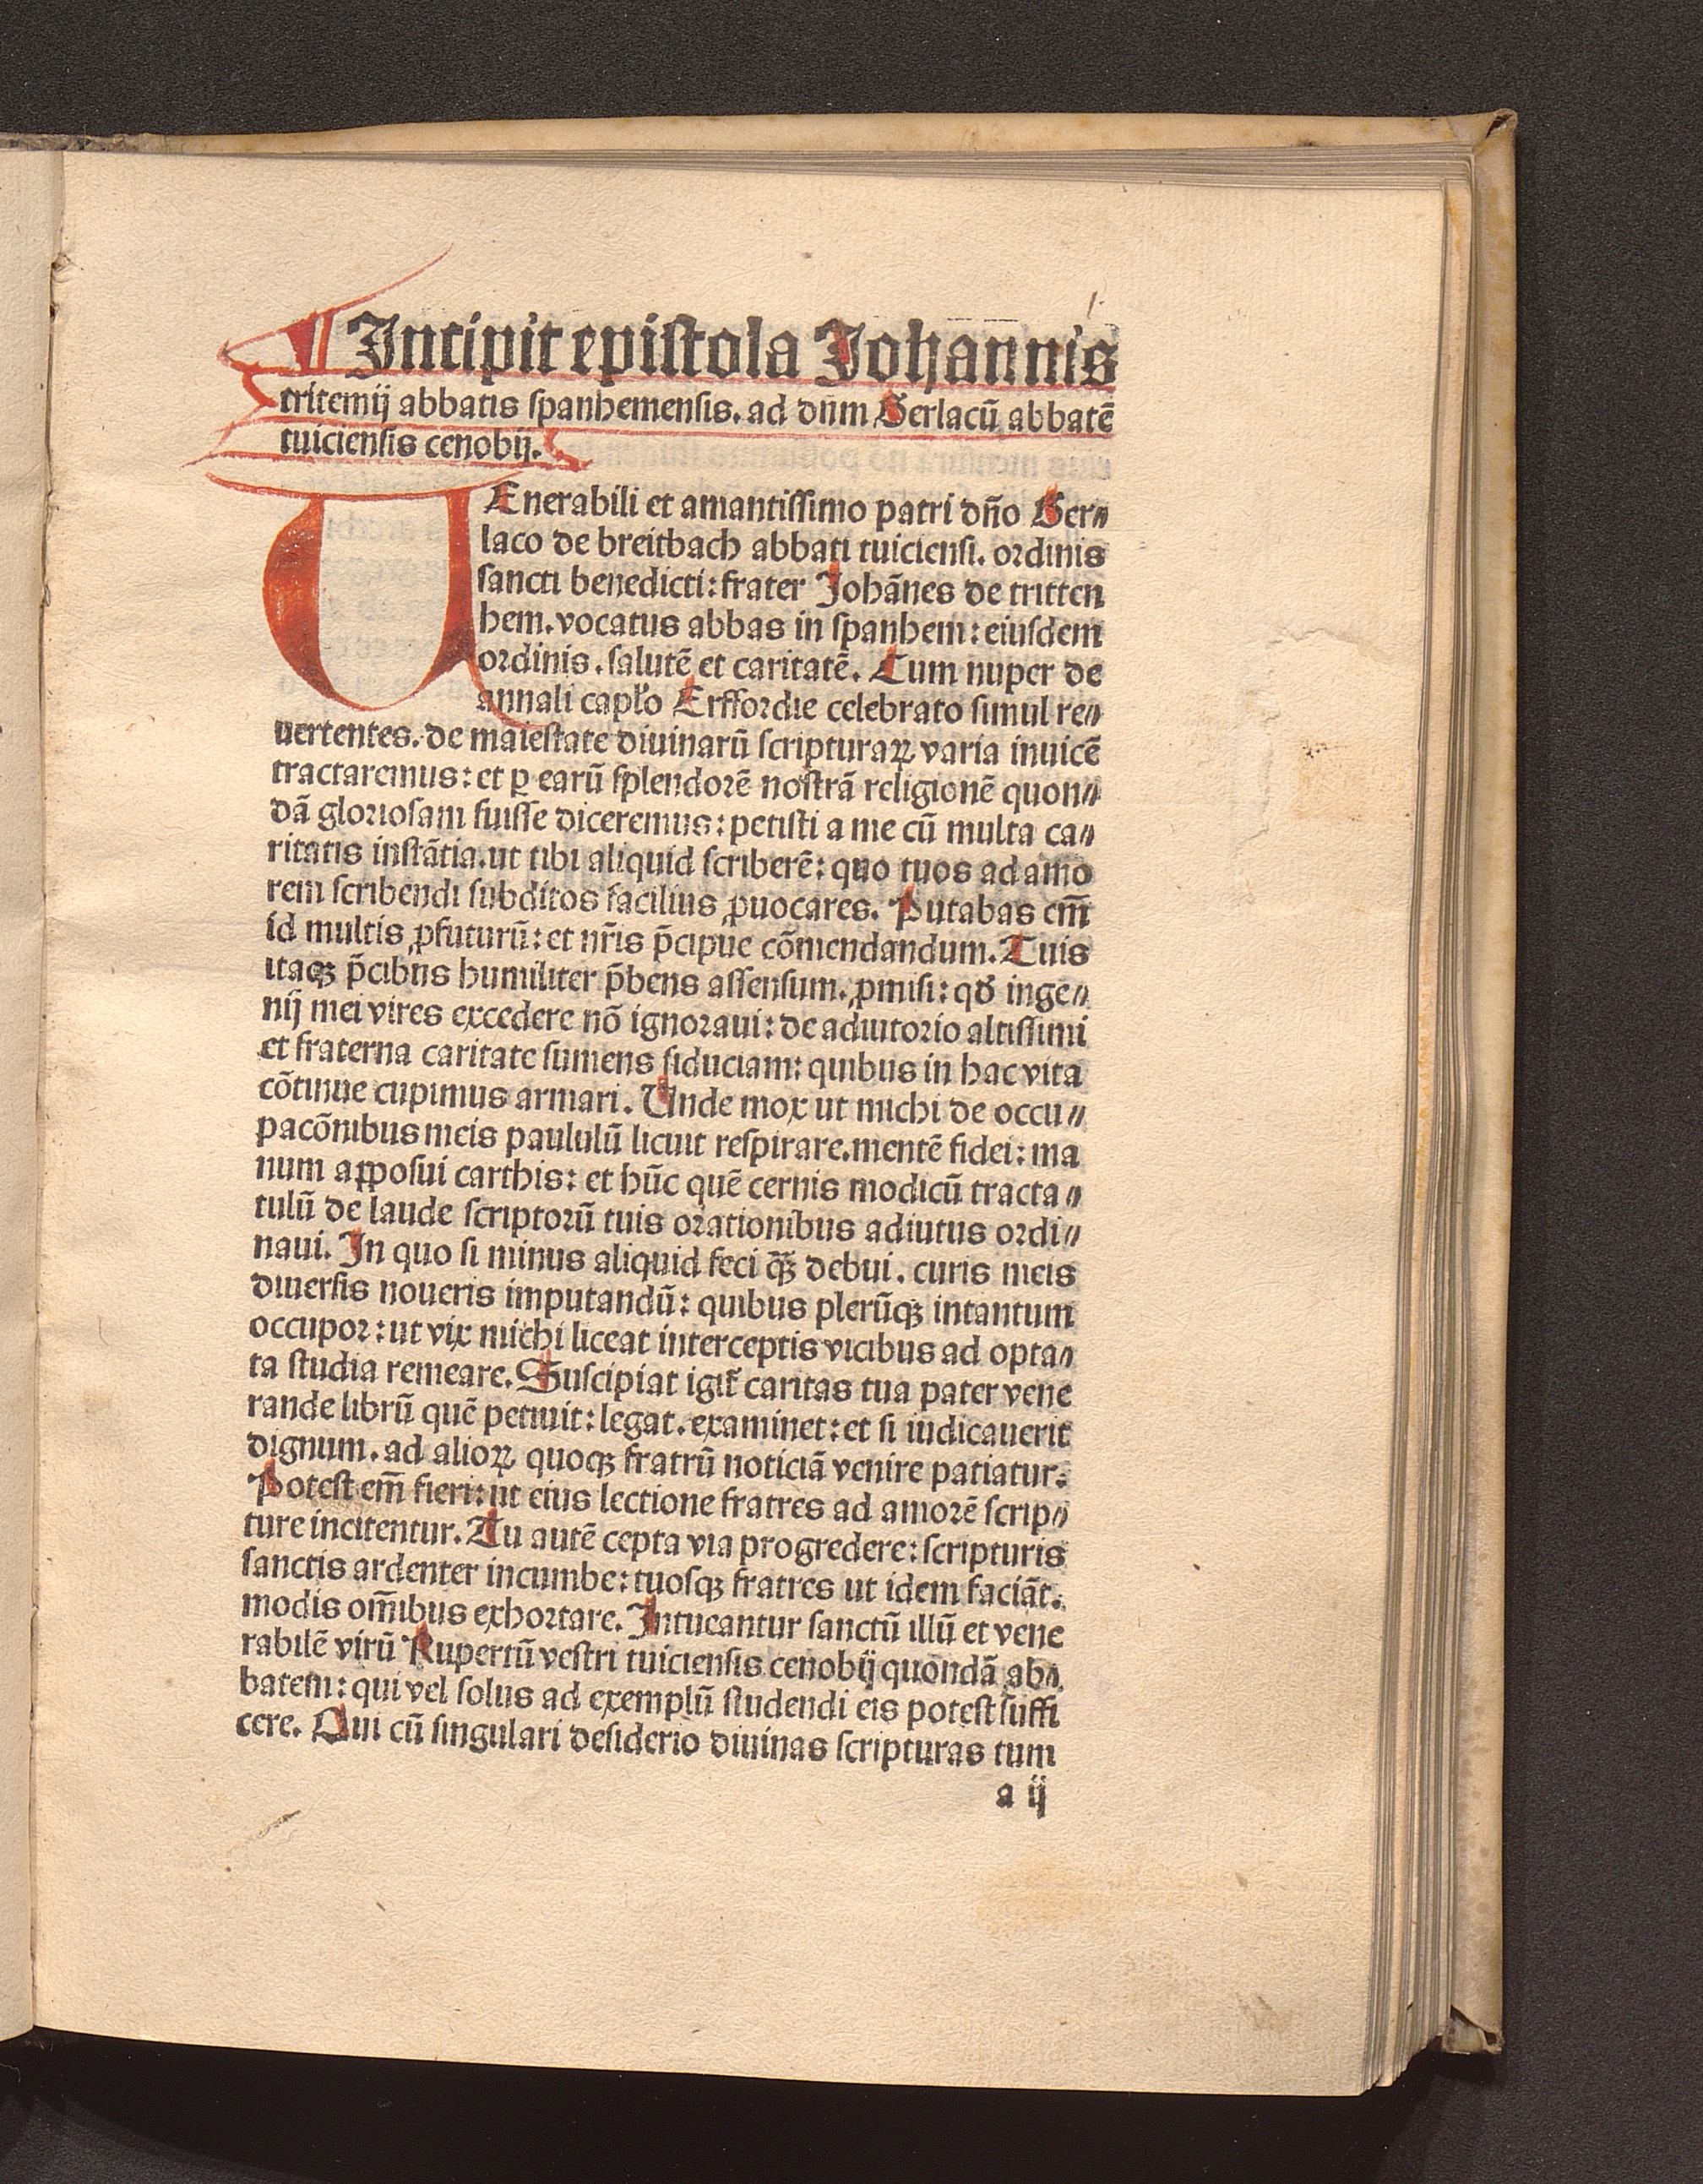 ¶ Incipit epistola Johannis
tritemij abbatis spanhemensis. ad dn̄m Gerlacū abbatē
tuiciensis cenobij.
VEnerabili et amantissimo patri dn̄o Ger⸗
laco de breitbach abbati tuiciensi. ordinis
sancti benedicti: frater Johānes de tritten
hem. vocatus abbas in spanhem: eiusdem
ordinis. salutē et caritatē. Cum nuper de
annali capl̓o Erffordie celebrato simul re⸗
uertentes. de maiestate diuinarū scripturaꝝ varia inuicē
tractaremus: et ꝑ earū splendorē nostrā religionē quon⸗
dā gloriosam fuisse diceremus: petisti a me cū multa ca⸗
ritatis instātia. ut tibi aliquid scriberē: quo tuos ad amo
rem scribendi subditos facilius ꝓuocares. Putabas em̄
id multis ꝓfuturū: et nr̄is p̄cipue cōmendandum. Tuis
itaqꝫ p̄cibus humiliter p̄bens assensum. ꝓmisi: qđ inge⸗
nij mei vires excedere nō ignoraui: de adiutorio altissimi
et fraterna caritate sumens fiduciam: quibus in hac vita
cōtinue cupimus armari. Unde mox ut michi de occu⸗
pacōnibus meis paululū licuit respirare. mentē fidei: ma
num apposui carthis: et hūc quē cernis modicū tracta⸗
tulū de laude scriptorū tuis orationibus adiutus ordi⸗
naui. In quo si minus aliquid feci q̄ꝫ debui. curis meis
diuersis noueris imputandū: quibus plerūqꝫ intantum
occupor: ut vix michi liceat interceptis vicibus ad opta⸗
ta studia remeare. Suscipiat igit᷑ caritas tua pater vene
rande librū quē petiuit: legat. examinet: et si iudicauerit
dignum. ad alioꝝ quoqꝫ fratrū noticiā venire patiatur.
Potest em̄ fieri: ut eius lectione fratres ad amorē scrip⸗
ture incitentur. Tu autē cepta via progredere: scripturis
sanctis ardenter incumbe: tuosqꝫ fratres ut idem faciāt.
modis om̄ibus exhortare. Intueantur sanctū illū et vene
rabilē virū Rupertū vestri tuiciensis cenobij quondā ab⸗
batem: qui vel solus ad exemplū studendi eis potest suffi
cere. Qui cū singulari desiderio diuinas scripturas tum
a ij